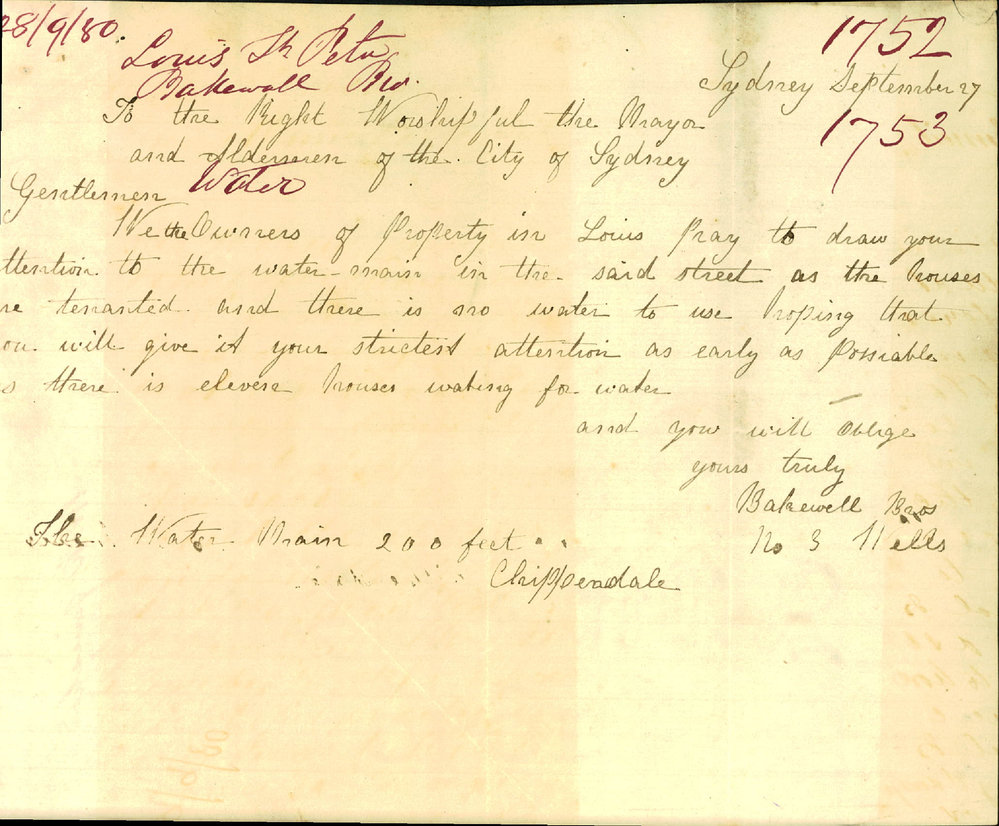 28/9/80.
1752
Louis St Peto
Sydney September 27
Bakewell Bro.
To the Right Worshipful the Mayor
1753
and Aldermen of the City of Sydney
Gentlemen Water
We the Owners of Property in Louis Pray to draw your
ttention to the water-main in the said street as the houses
re tenanted and there is no water to use hoping that
ou will give it your strictest attention as early as Possiable
s there is eleven houses wating for water
and you will Oblige
yours truly
Bakewell Bros
Water Main 200 feet
No 3 Wells
Chippendale